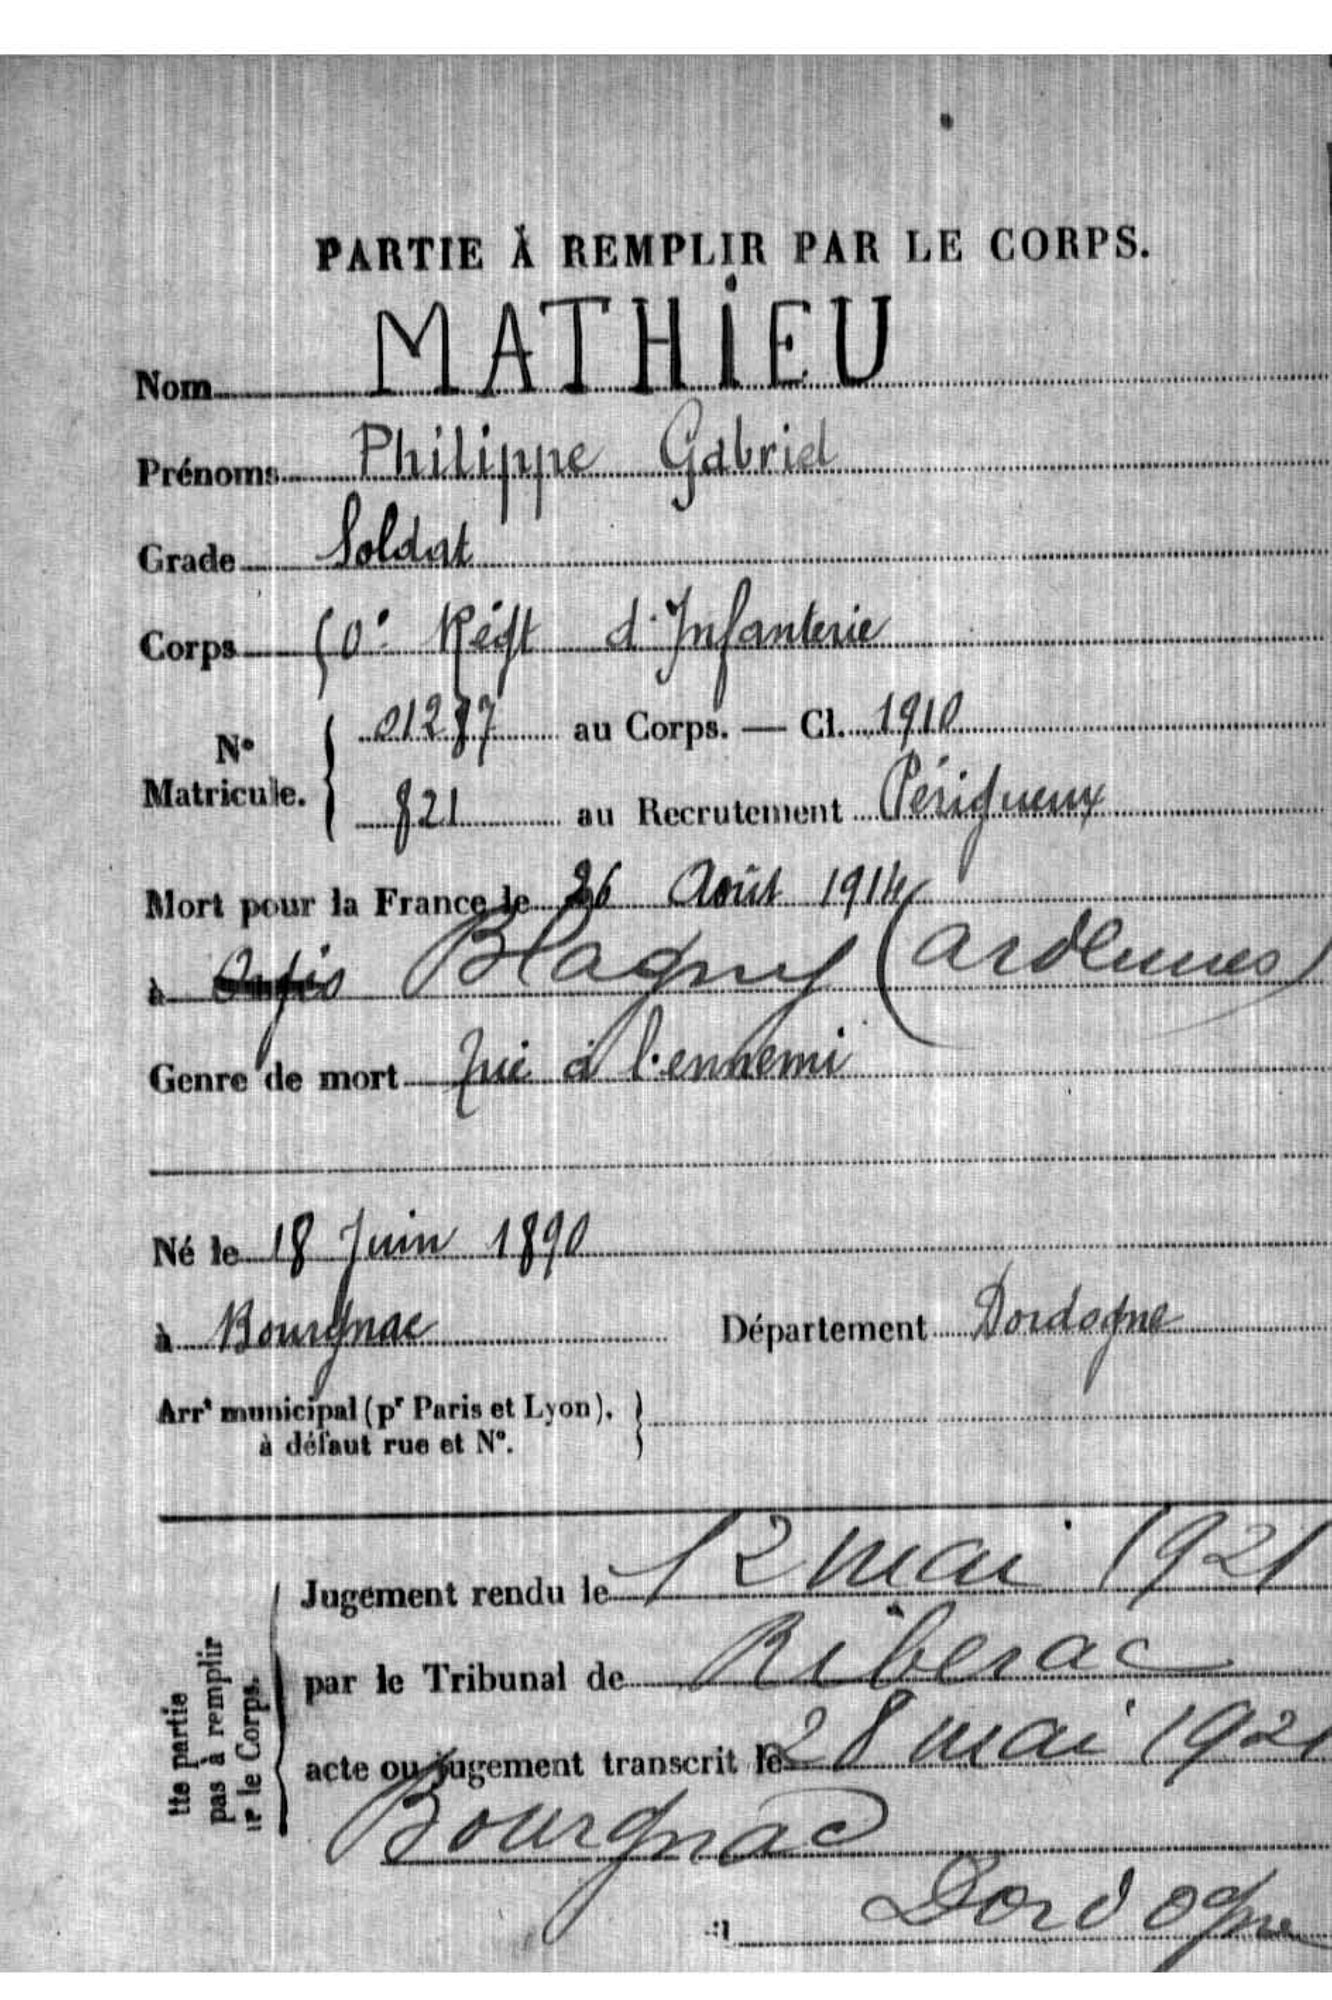 PARTIE À REMPLIR PAR LE CORPS.
Nom MATHIEU
Prénoms Philippe Gabriel
Grade Soldat
Corps 50e Régt d'Infanterie
N° Matricule. 01287 au Corps. — Cl. 1910
821 au Recrutement Périgueux
Mort pour la France le 26 Août 1914
à Blagny (Ardennes)
Genre de mort Tué à l'ennemi
Né le 18 Juin 1890
à Bourgnac Département Dordogne
Arrt municipal (pr Paris et Lyon),
à défaut rue et N°.
Jugement rendu le 12 mai 1921
par le Tribunal de Riberac
acte ou jugement transcrit le 28 mai 1921
Bourgnac
Dordogne
tte partie
pas à remplir
ur le Corps.